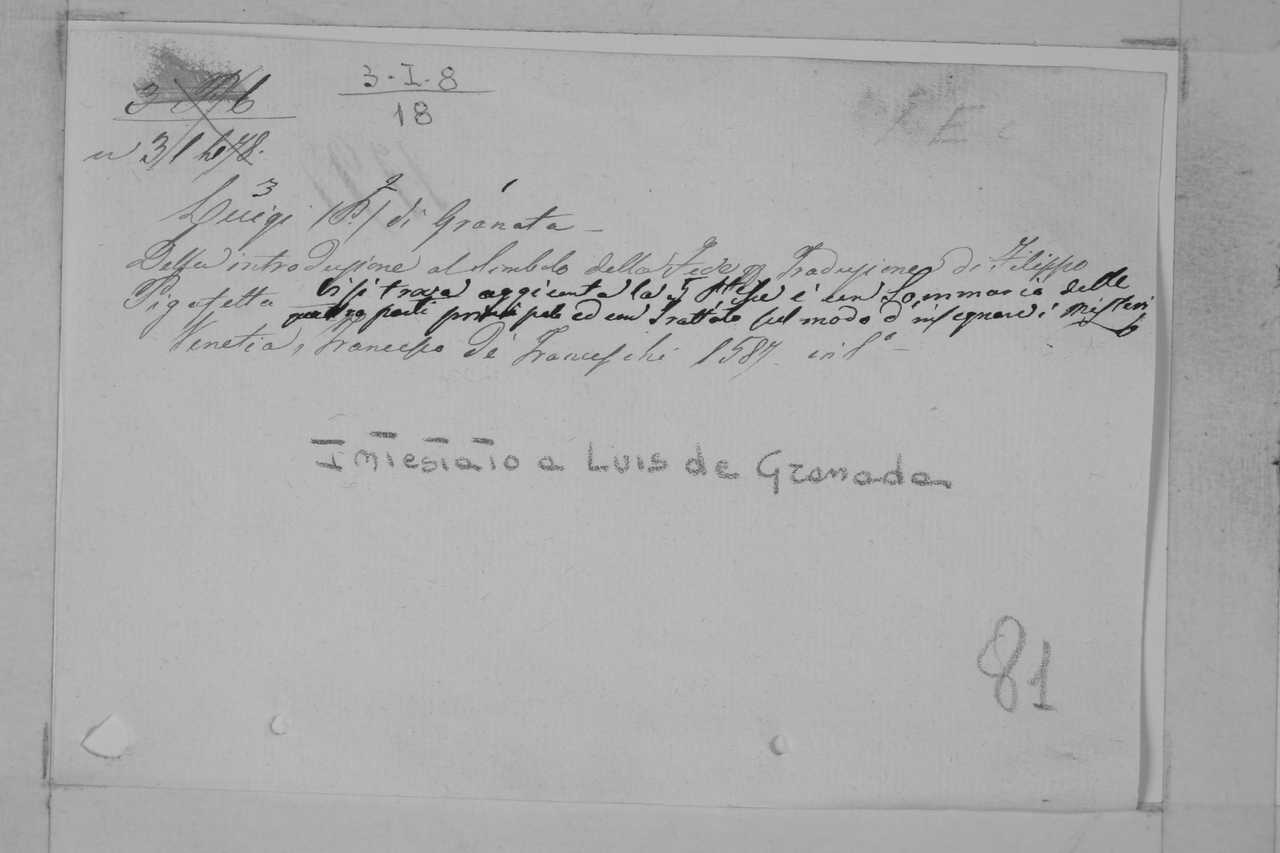 3-I-8
18
Luigi (P.) di Granata -
Della introduzione al simbolo della Fede Traduzione di Filippo
Pigafetta Vi si trova aggiunta la 5ª Pte. e un Sommario delle
quattro parti principali ed un Trattato sul modo d'insegnare i misteri
Venetia, Francesco De Franceschi 1587. in 8° -
Intestato a Luis de Granada
81